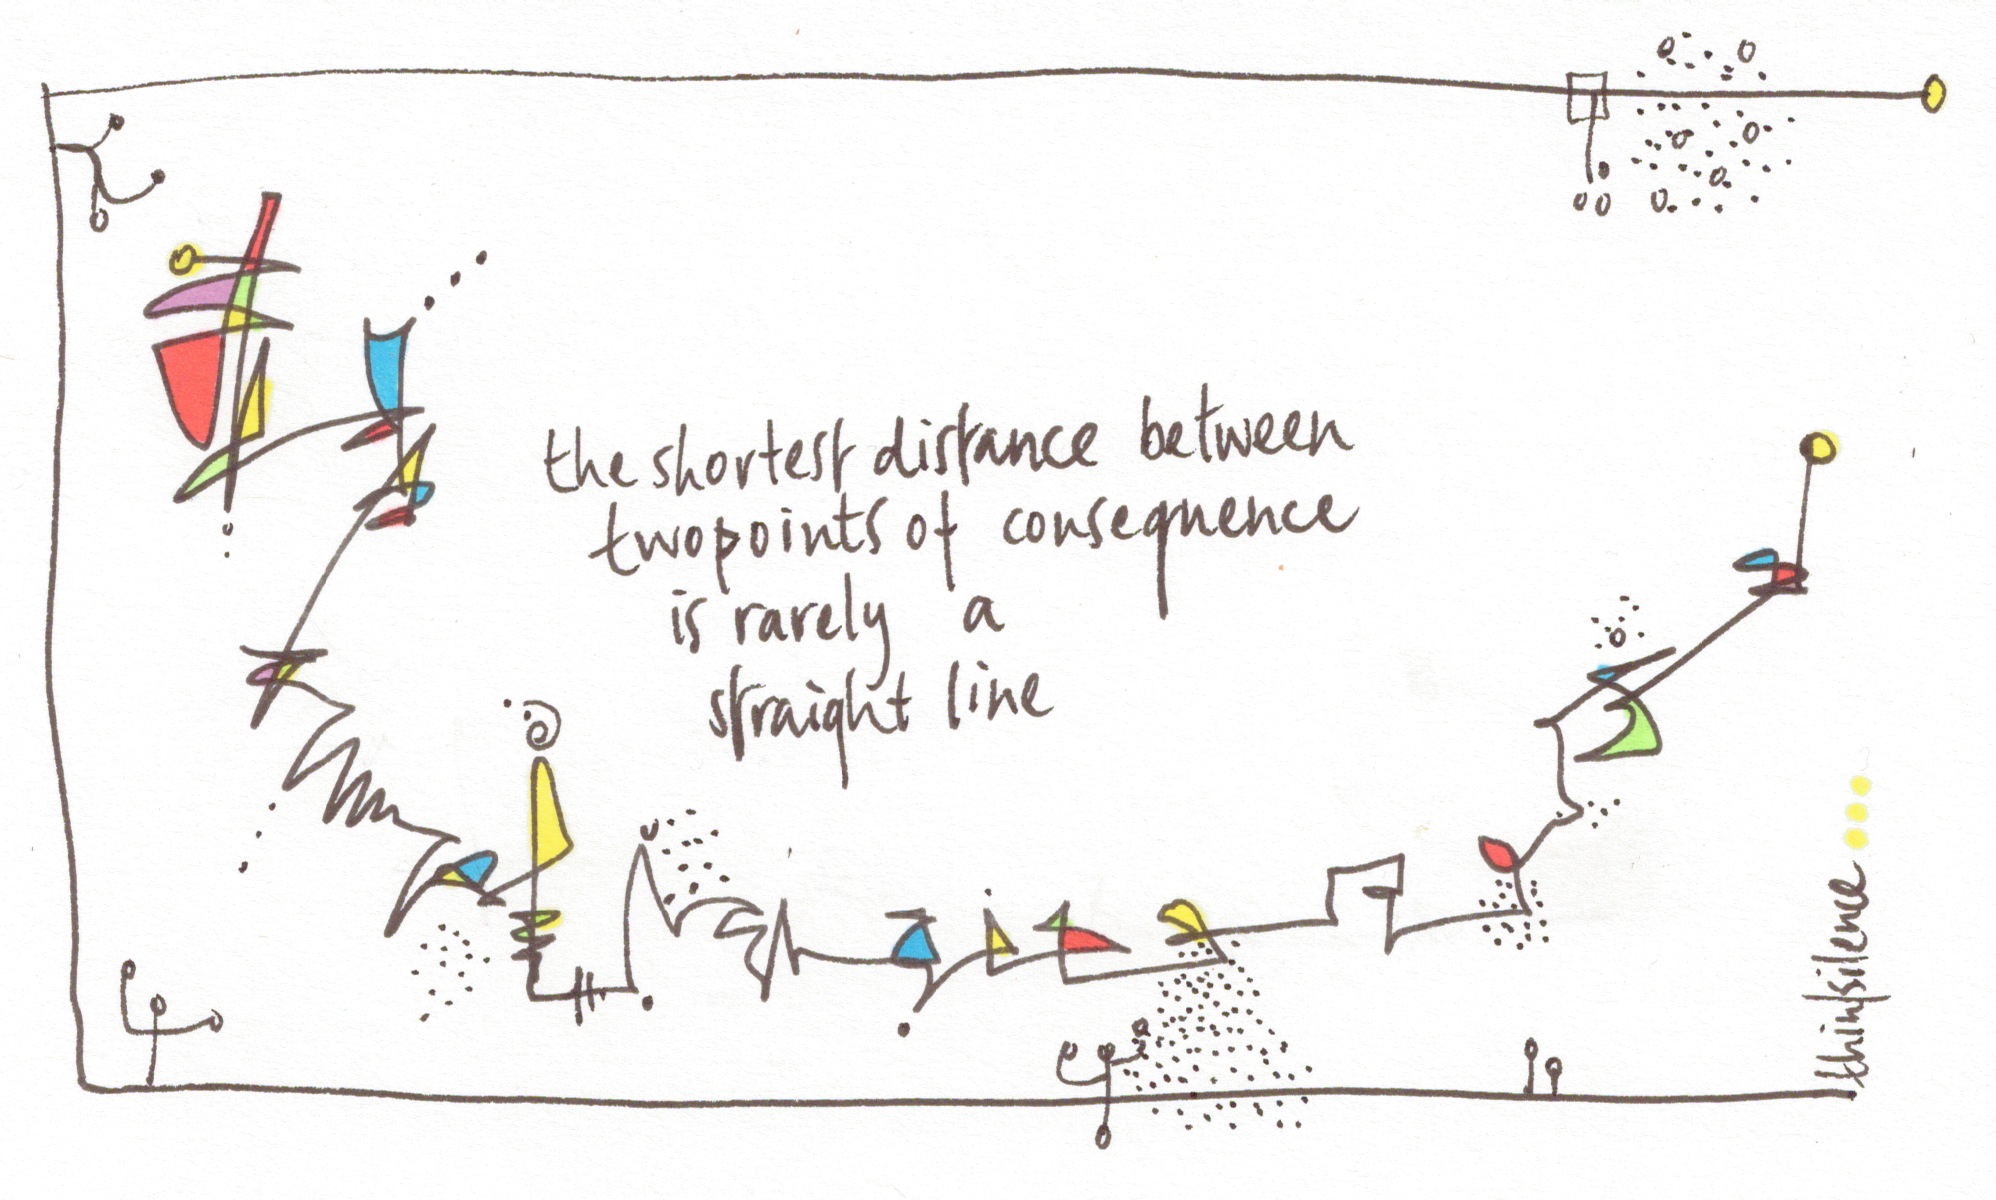 the shortest distance between
two points of consequence
is rarely a
straight line
thinksilence